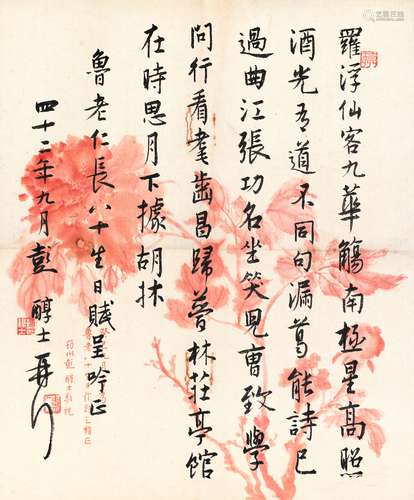 羅浮仙客九華觴南極星高照
酒光有道不同句漏葛能詩已
過曲江張功名坐笑兒曹致學
問行看耄齒昌歸夢林莊亭館
在時思月下據胡牀
魯老仁長八十生日賦呈吟正
四十二年九月彭醇士再拜